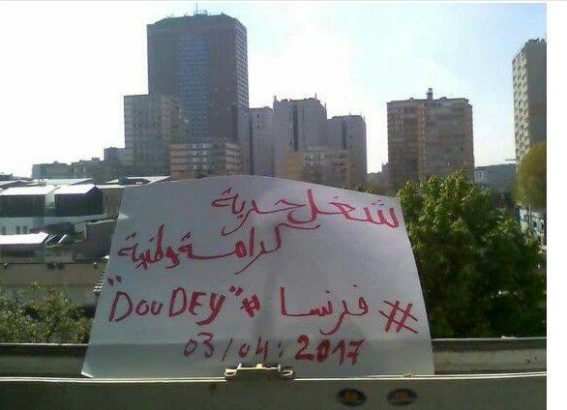 شغل حرية
كرامة وطنية
# فرنسا # "DouDEY"
03/04: 2017